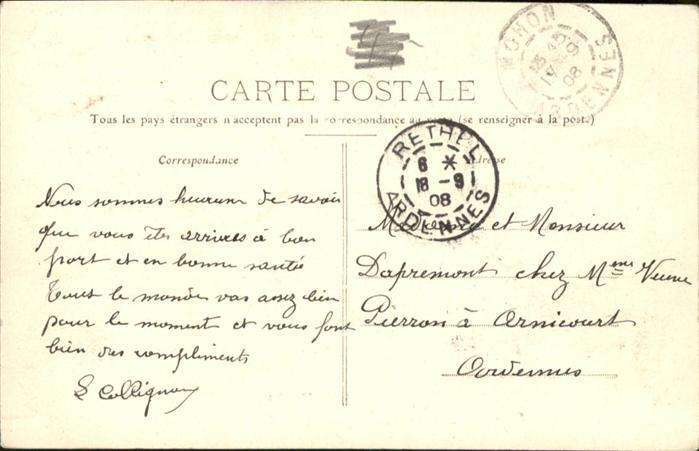 CARTE POSTALE
Tous les pays étrangers n'acceptent pas la correspondance au (se renseigner à la poste)
MOHON
ARDENNES
08
RETHEL
6 *
18 - 9
08
ARDENNES
Correspondance
Adresse
Nous sommes heureux de savoir
que vous êtes arrivés à bon
port et en bonne santé
Tout le monde vas assez bien
pour le moment et vous font
bien des compliments
Collignon
Madame et Monsieur
Dapremont chez Mme Veuve
Pierron à Arnicourt
Ardennes